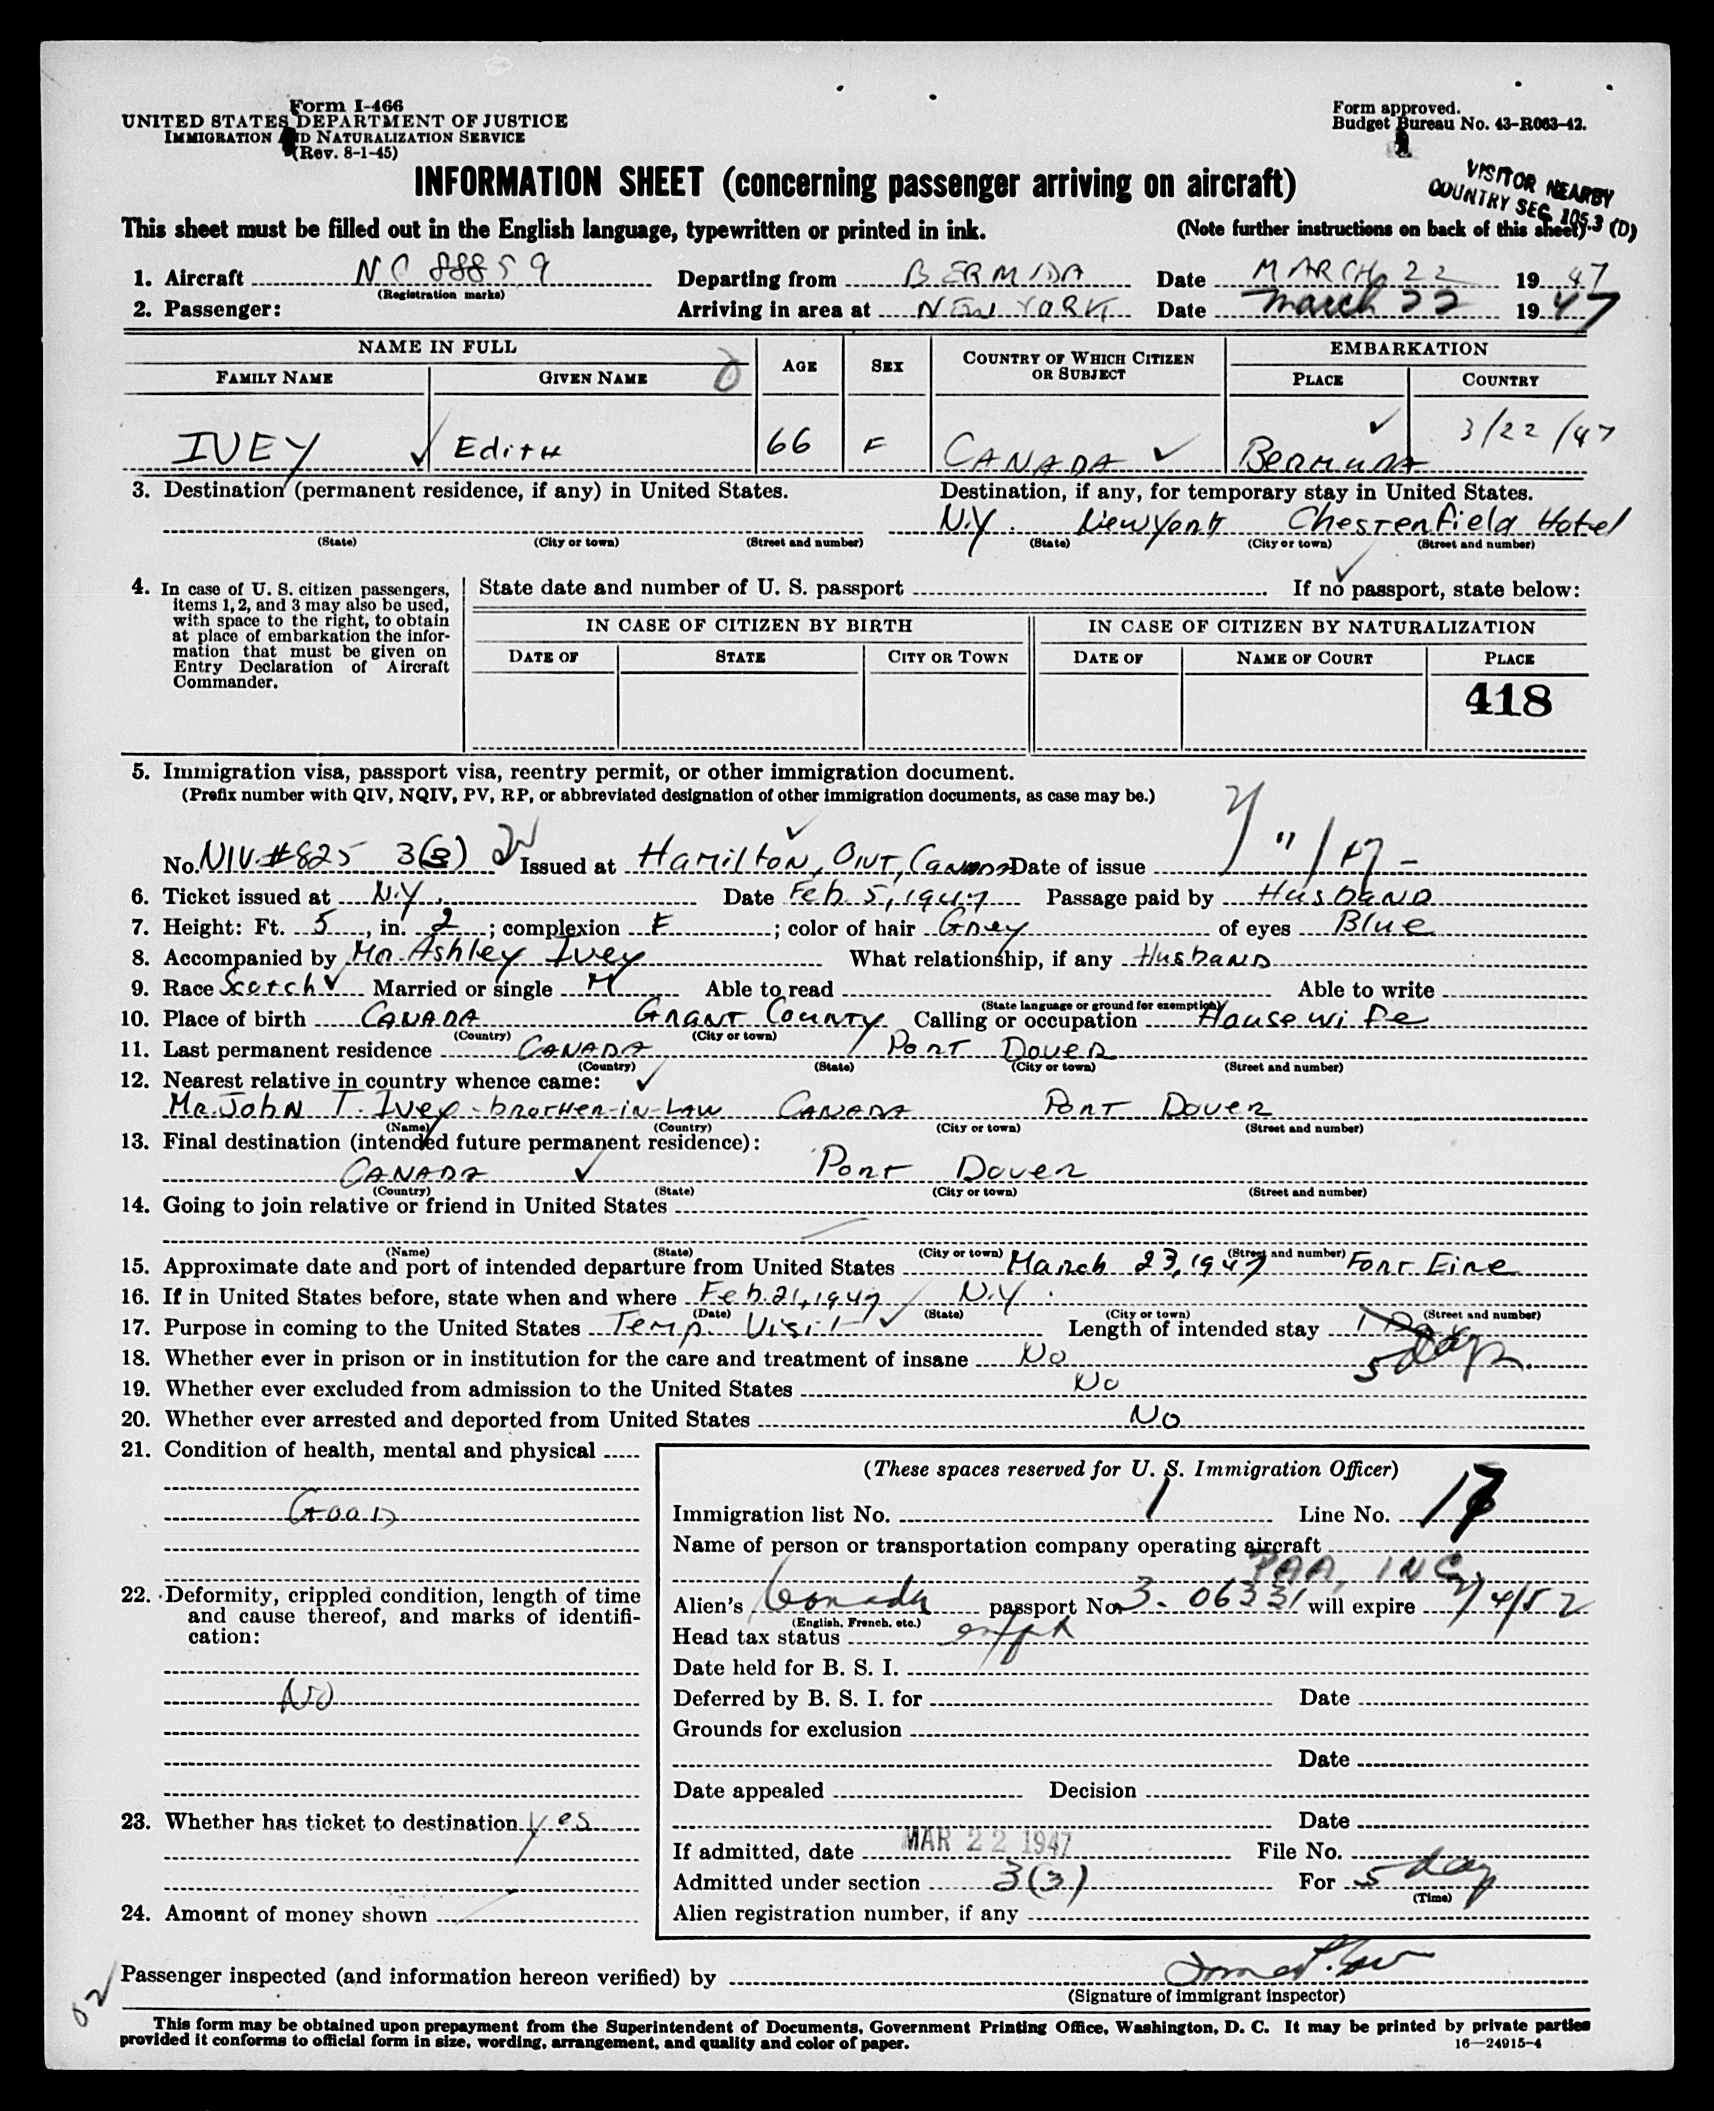 Form I-466
UNITED STATES DEPARTMENT OF JUSTICE
IMMIGRATION AND NATURALIZATION SERVICE
(Rev. 8-1-45)
Form approved.
Budget Bureau No. 43-R063-42.
INFORMATION SHEET (concerning passenger arriving on aircraft)
VISITOR NEARBY
COUNTRY SEC. 105.3 (D)
This sheet must be filled out in the English language, typewritten or printed in ink. (Note further instructions on back of this sheet)
1. Aircraft NC 88859 Departing from BERMUDA Date MARCH 22 1947
(Registration marks)
2. Passenger: Arriving in area at NEW YORK Date March 22 1947
NAME IN FULL AGE SEX COUNTRY OF WHICH CITIZEN OR SUBJECT EMBARKATION
FAMILY NAME GIVEN NAME PLACE COUNTRY
IVEY Edith 66 F CANADA BERMUDA 3/22/47
3. Destination (permanent residence, if any) in United States. Destination, if any, for temporary stay in United States.
N.Y. New York Chesterfield Hotel
(State) (City or town) (Street and number) (State) (City or town) (Street and number)
4. In case of U. S. citizen passengers, items 1, 2, and 3 may also be used, with space to the right, to obtain at place of embarkation the information that must be given on Entry Declaration of Aircraft Commander.
State date and number of U. S. passport If no passport, state below:
IN CASE OF CITIZEN BY BIRTH IN CASE OF CITIZEN BY NATURALIZATION
DATE OF STATE CITY OR TOWN DATE OF NAME OF COURT PLACE
418
5. Immigration visa, passport visa, reentry permit, or other immigration document.
(Prefix number with QIV, NQIV, PV, RP, or abbreviated designation of other immigration documents, as case may be.)
No. NIV #825 3(3) Issued at Hamilton, Ont, Canada Date of issue
6. Ticket issued at N.Y. Date Feb. 5, 1947 Passage paid by Husband
7. Height: Ft. 5, in. 2; complexion F; color of hair Grey of eyes Blue
8. Accompanied by Mr. Ashley Ivey What relationship, if any Husband
9. Race Scotch Married or single M Able to read Able to write
(State language or ground for exemption)
10. Place of birth CANADA Grant County Calling or occupation Housewife
(Country) (City or town)
11. Last permanent residence CANADA Port Dover
(Country) (State) (City or town) (Street and number)
12. Nearest relative in country whence came:
Mr. John T. Ivey - brother-in-law CANADA Port Dover
(Name) (Country) (City or town) (Street and number)
13. Final destination (intended future permanent residence):
CANADA Port Dover
(Country) (State) (City or town) (Street and number)
14. Going to join relative or friend in United States
(Name) (State) (City or town) (Street and number)
15. Approximate date and port of intended departure from United States March 23, 1947 Fort Eire
16. If in United States before, state when and where Feb. 21, 1947 N.Y.
(Date) (State) (City or town) (Street and number)
17. Purpose in coming to the United States Temp. Visit Length of intended stay 1 Day 5 days
18. Whether ever in prison or in institution for the care and treatment of insane No
19. Whether ever excluded from admission to the United States No
20. Whether ever arrested and deported from United States No
21. Condition of health, mental and physical
Good
22. Deformity, crippled condition, length of time and cause thereof, and marks of identification:
No
23. Whether has ticket to destination yes
24. Amount of money shown
(These spaces reserved for U. S. Immigration Officer)
Immigration list No. 1 Line No. 17
Name of person or transportation company operating aircraft
PAA, INC.
Alien's Canada passport No. 3-06331 will expire 2/4/52
(English, French, etc.)
Head tax status
Date held for B. S. I.
Deferred by B. S. I. for Date
Grounds for exclusion
Date
Date appealed Decision
Date
If admitted, date MAR 22 1947 File No.
Admitted under section 3(3) For 5 day
(Time)
Alien registration number, if any
Passenger inspected (and information hereon verified) by
(Signature of immigrant inspector)
02
This form may be obtained upon prepayment from the Superintendent of Documents, Government Printing Office, Washington, D. C. It may be printed by private parties
provided it conforms to official form in size, wording, arrangement, and quality and color of paper.
16—24915-4